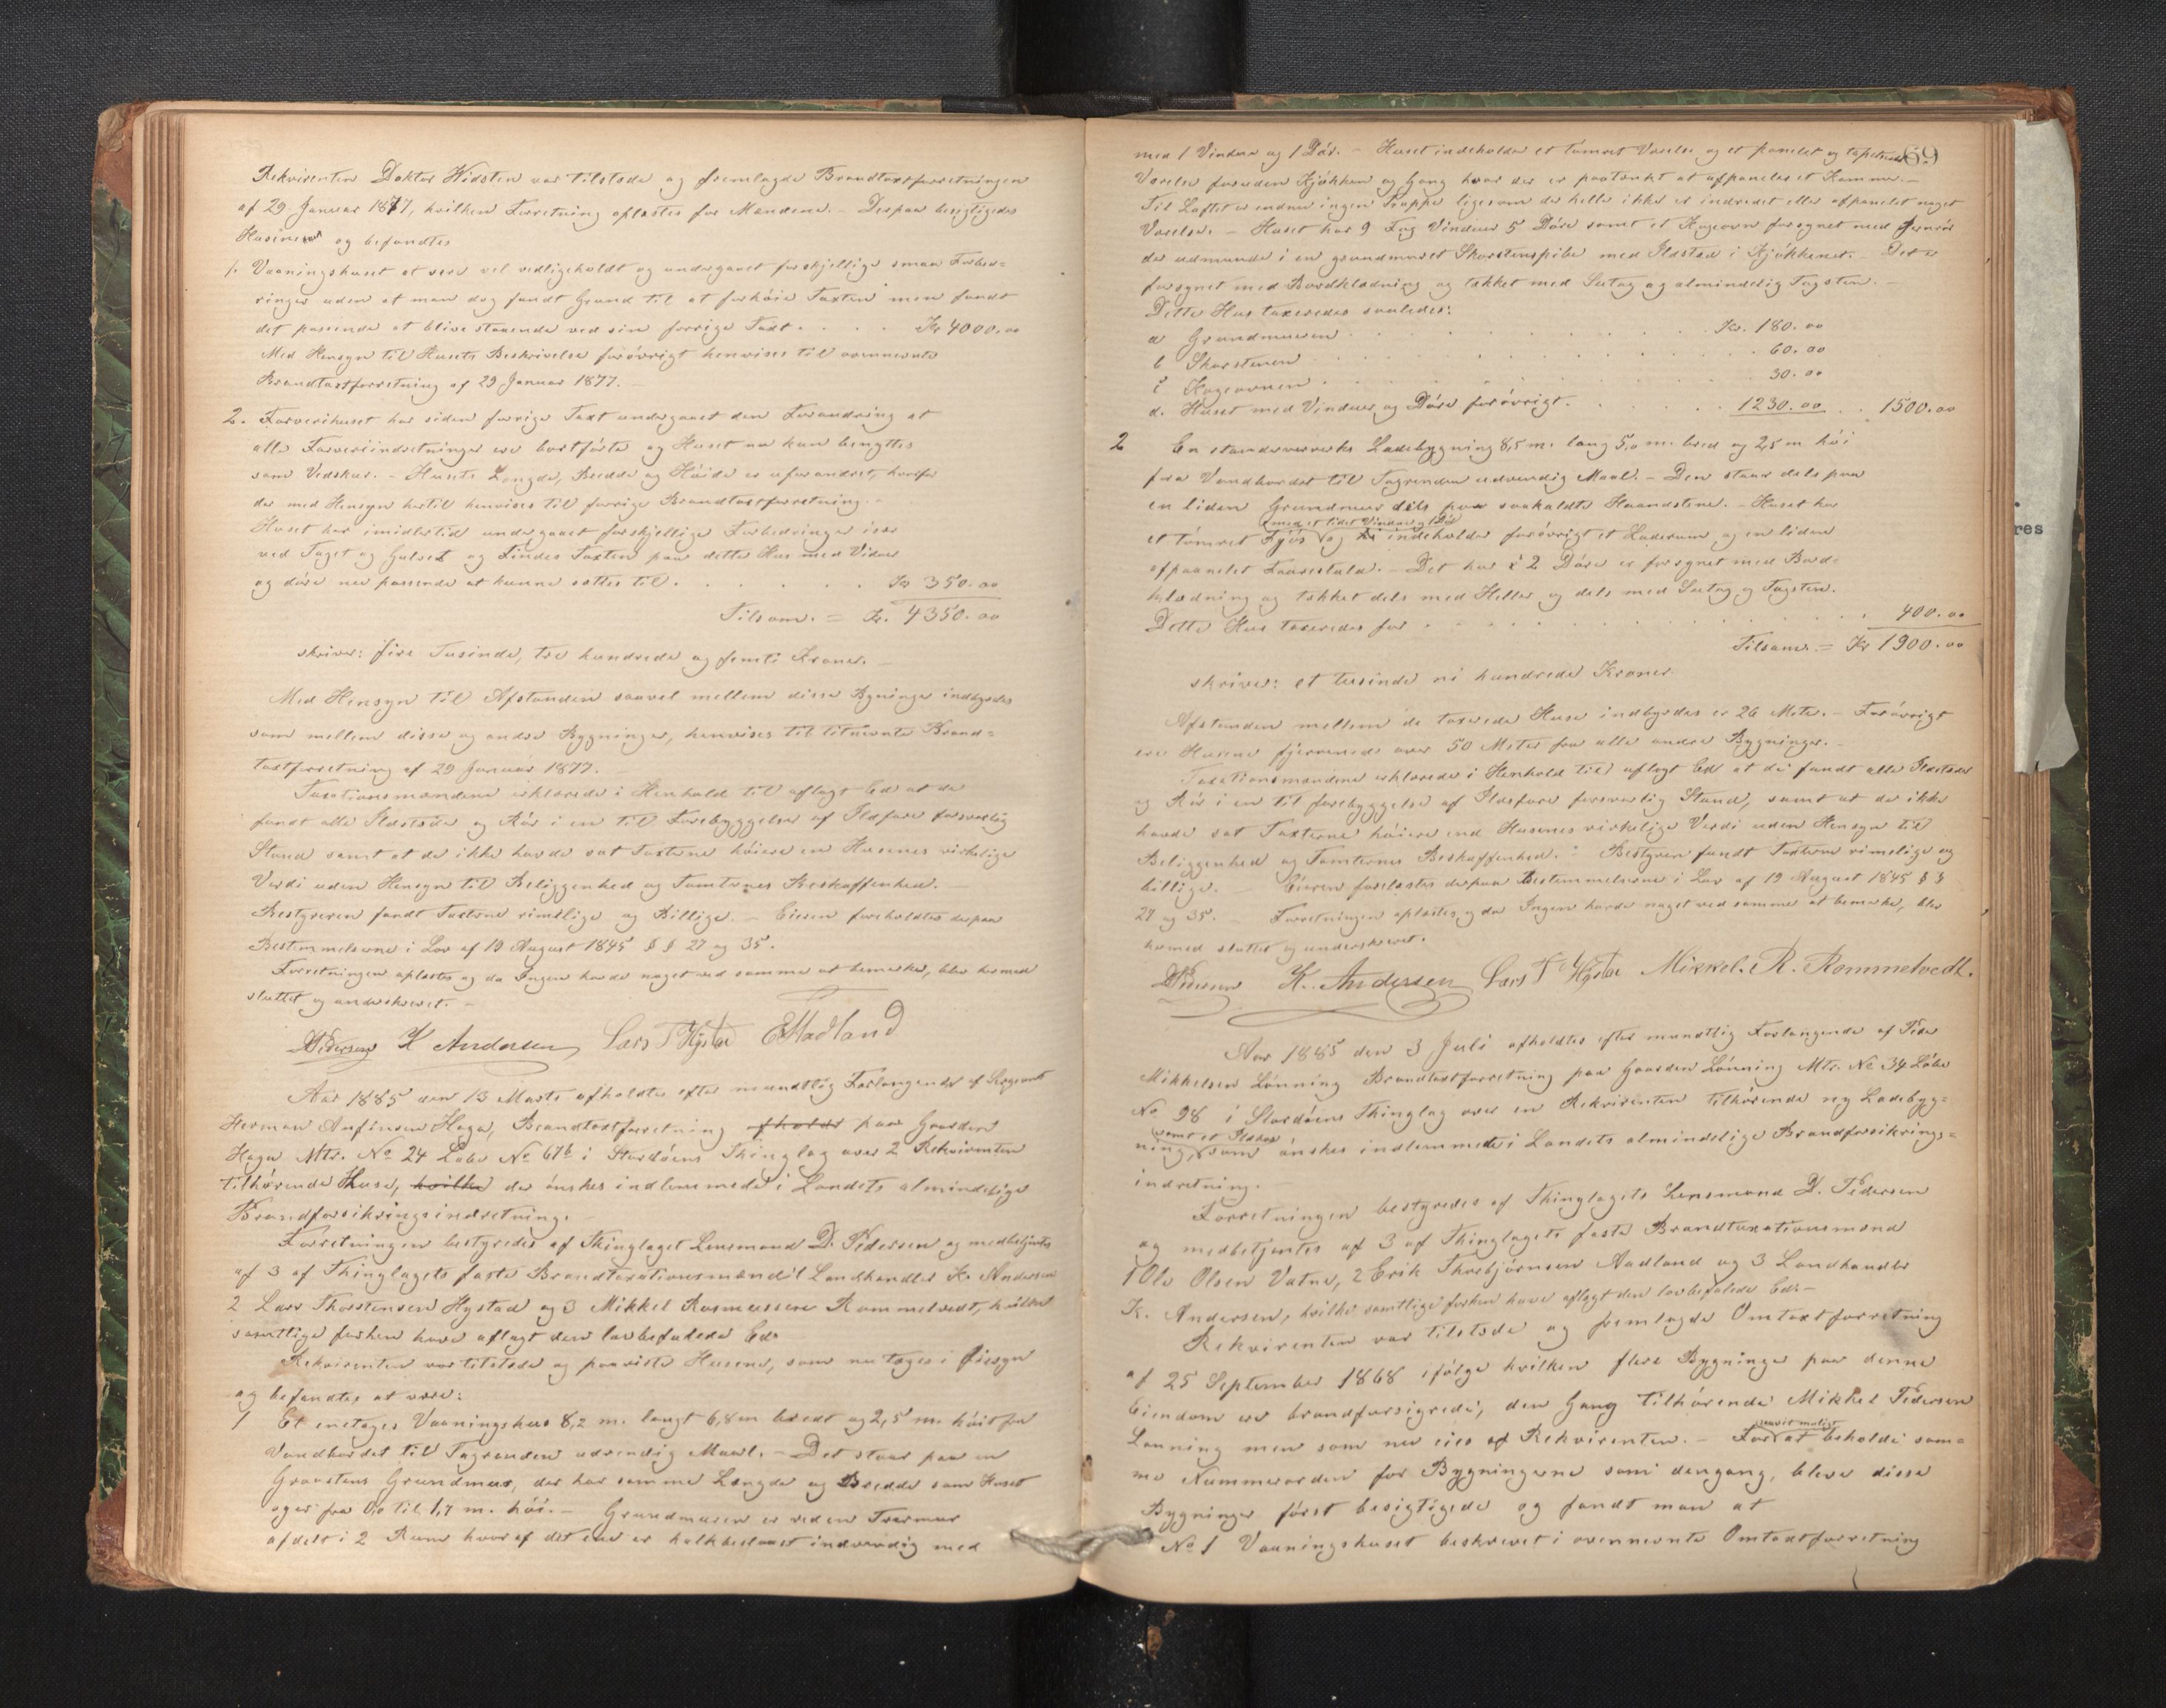 Rekvirenten Doktor Hidsten var tilstede og fremlagde Brandtaxtforretningen
af 29 Januar 1877, hvilken Forretning oplæstes for Mændene. – Derpaa besigtigedes
Husene og befandtes
1. Vaaningshuset at være vel vedligeholdt og undergaaet forskjellige smaa Forbed=
ringer uden at man dog fandt Grund til at forhöie Taxten men fandt
det passende at blive staaende ved sin forrige Taxt. . . . Kr 4000.00
Med Hensyn til Husets Beskrivelse forövrigt henvises til ovennævnte
Brandtaxtforretning af 29 Januar 1877. –
2. Farverihuset har siden forrige Taxt undergaaet den Forandring at
alle Farveriindretninger ere bortförte og Huset nu kun benyttes
som Vedskur. – Husets Længde, Bredde og Höide er uforandret, hvorfor
der med Hensyn hertil henvises til forrige Brandtaxtforretning. –
Huset har imidlertid undergaaet forskjellige Forbedringer især
ved Taget og Gulvet og findes Taxten paa dette Hus med Vinduer
og döre nu passende at kunne sættes til . . . . . Kr 350.00
Tilsam. = Kr. 4350.00
skriver: fire Tusinde, tre hundrede og femti Kroner. –
Med Hensyn til Afstanden saavel mellem disse Bygninger indbyrdes
som mellem disse og andre Bygninger, henvises til titnævnte Brand=
taxtforretning af 29 Januar 1877. –
Taxationsmændene erklærede i Henhold til aflagt Ed at de
fandt alle Ildsteder og Rör i en til Forebyggelse af Ildfare forsvarlig
Stand samt at de ikke havde sat Taxterne höiere en Husenes virkelige
Verdi uden Hensyn til Beliggenhed og Tomternes Beskaffenhed. –
Bestyreren fandt Taxterne rimelige og Billige. – Eieren foreholdtes derpaa
Bestemmelserne i Lov af 19 August 1845 § § 27 og 35.
Forretningen oplæstes og da Ingen havde noget ved samme at bemærke, blev hermed
sluttet og underskrevet. –
D Pedersen K Andersen Lars T Hystad E Aadland
Aar 1885 den 13 Marts afholdtes efter mundtlig Forlangende af Sergeant
Herman Anfinsen Haga, Brandtaxtforretning paa Gaarden
Haga Mtr. No 24 Löbe No 67b i Stordöens Thinglag over 2 Rekvirenten
tilhörende Huse, hvilke der önskes indlemmede i Landets almindelige
Brandforsikringsindretning. –
Forretningen bestyredes af Thinglaget Lensmand D. Pedersen og medbetjentes
af 3 af Thinglagets faste Brandtaxationsmænd: 1 Landhandler K. Andersen
2 Lars Thorstensen Hystad og 3 Mikkel Rasmussen Rommetvedt, hvilke
samtlige forhen have aflagt den lovbefalede Ed.
Rekvirenten var tilstede og paaviste Husene, som nu toges i Öiesyn
og befandtes at være:
1 Et enetages Vaaningshus 8,2 m. langt 6,8 m bredt og 2,5 m. höit fra
Vandbordet til Tagrenden udvendig Maal. – Det staar paa en
Graastens Grundmur, der har samme Længde og Bredde som Huset
og er fra 0,0 til 1,7 m. höi. – Grundmuren er ved en Tværmur
afdelt i 2 Rum hvoraf det ene er kalkbeslaaet indvendig med
89
med 1 Vindue og 1 Dör. – Huset indeholder et tömret Værelse og et panelet og tapetseret
Værelse foruden Kjökken og Gang hvor der er paatænkt at afpaneles et Kammer. –
Til Loftet er endnu ingen Trappe ligesom der heller ikke er indredet eller afpanelet noget
Værelse. – Huset har 9 Fag Vinduer 5 Döre samt et Kogeovn forsynet med Jernrör
der udmunder i en grundmuret Skorstenspibe med Ildsted i Kjökkenet. – Det er
forsynet med Bordklædning og tækket med Sutag og almindelig Tagsten. –
Dette Hus taxeredes saaledes:
a Grundmuren . . . . . Kr. 180.00
b Skorstenen . . . . . 60.00
c Kogeovnen . . . . . 30.00
d. Huset med Vinduer og Döre forövrigt. . . . . 1230.00 . . 1500.00
2 En stavværværks Ladebygning 8,5 m. lang 5,0 m. bred og 2,5 m höi
fra Vandbordet til Tagrenden udvendig Maal. – Den staar dels paa
en liden Grundmur dels paa saakaldte Haandstene. – Huset har
med et lidet Vindue og 1 Dör
et tömret Fjös og indeholder forövrigt et Laderum og en liden
afpaanelet Faarestald. – Det har 2 Döre er forsynet med Bord=
klædning og tækket dels med Heller og dels med Sutag og Tagsten.
Dette Hus taxeredes for . . . . . 400.00
Tilsam. = Kr 1900.00
skriver: et tusinde ni hundrede Kroner.
Afstanden mellem de taxerede Huse indbyrdes er 26 Meter. – Forövrigt
ere Husene fjernede over 50 Meter fra alle andre Bygninger. –
Taxationsmændene erklærede i Henhold til aflagt Ed at de fandt alle Ildsteder
og Rör i en til forebyggelse af Ildsfare forsvarlig Stand, samt at de ikke
havde sat Taxterne höiere end Husenes virkelige Verdi uden Hensyn til
Beliggenhed og Tomternes Beskaffenhed. – Bestyreren fandt Taxterne rimelige og
billige. – Eieren forelæstes derpaa Bestemmelserne i Lov af 19 August 1845 § §
27 og 35. Forretningen oplæstes og da Ingen havde noget ved samme at bemærke, blev
hermed sluttet og underskrevet.
D Pedersen K. Andersen Lars T Hystad Mikkel. R. Rommetvedt.
Aar 1885 den 3 Juli afholdtes efter mundtlig Forlangende af Peder
Mikkelsen Lönning Brandtaxtforretning paa Gaarden Lönning Mtr. No 34 Löbe
No 98 i Stordöens Thinglag over en Rekvirenten tilhörende ny Ladebyg=
samt et Ildhus
ning, som önskes indlemmede i Landets almindelige Brandforsikrings=
indretning. –
Forretningen bestyredes af Thinglagets Lensmand D. Pedersen
og medbetjentes af 3 af Thinglagets faste Brandtaxationsmænd
1 Ole Olsen Vatne, 2 Erik Thorbjörnsen Aadland og 3 Landhandler
K. Andersen, hvilke samtlige forhen have aflagt den lovbefalede Ed. –
Rekvirenten var tilstede og fremlagde Omtaxtforretning
af 25 September 1868 ifölge hvilken flere Bygninger paa denne
Eiendom ere brandforsigrede, den Gang tilhörende Mikkel Pedersen
Lönning men som nu eies af Rekvirenten. – For
saavit muligt
at beholde sam=
me Nummerorden for Bygningerne som dengang, bleve disse
Bygninger först besigtigede og fandt man at
No 1 Vaaningshuset beskrevet i ovennevnte Omtaxtforretning
res